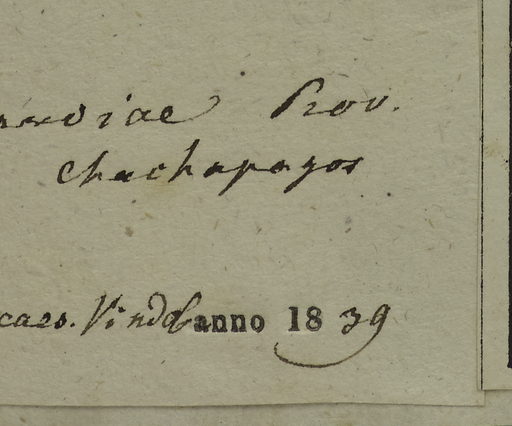 Prov.
Chachapoyos
caes. Vindob anno 1839